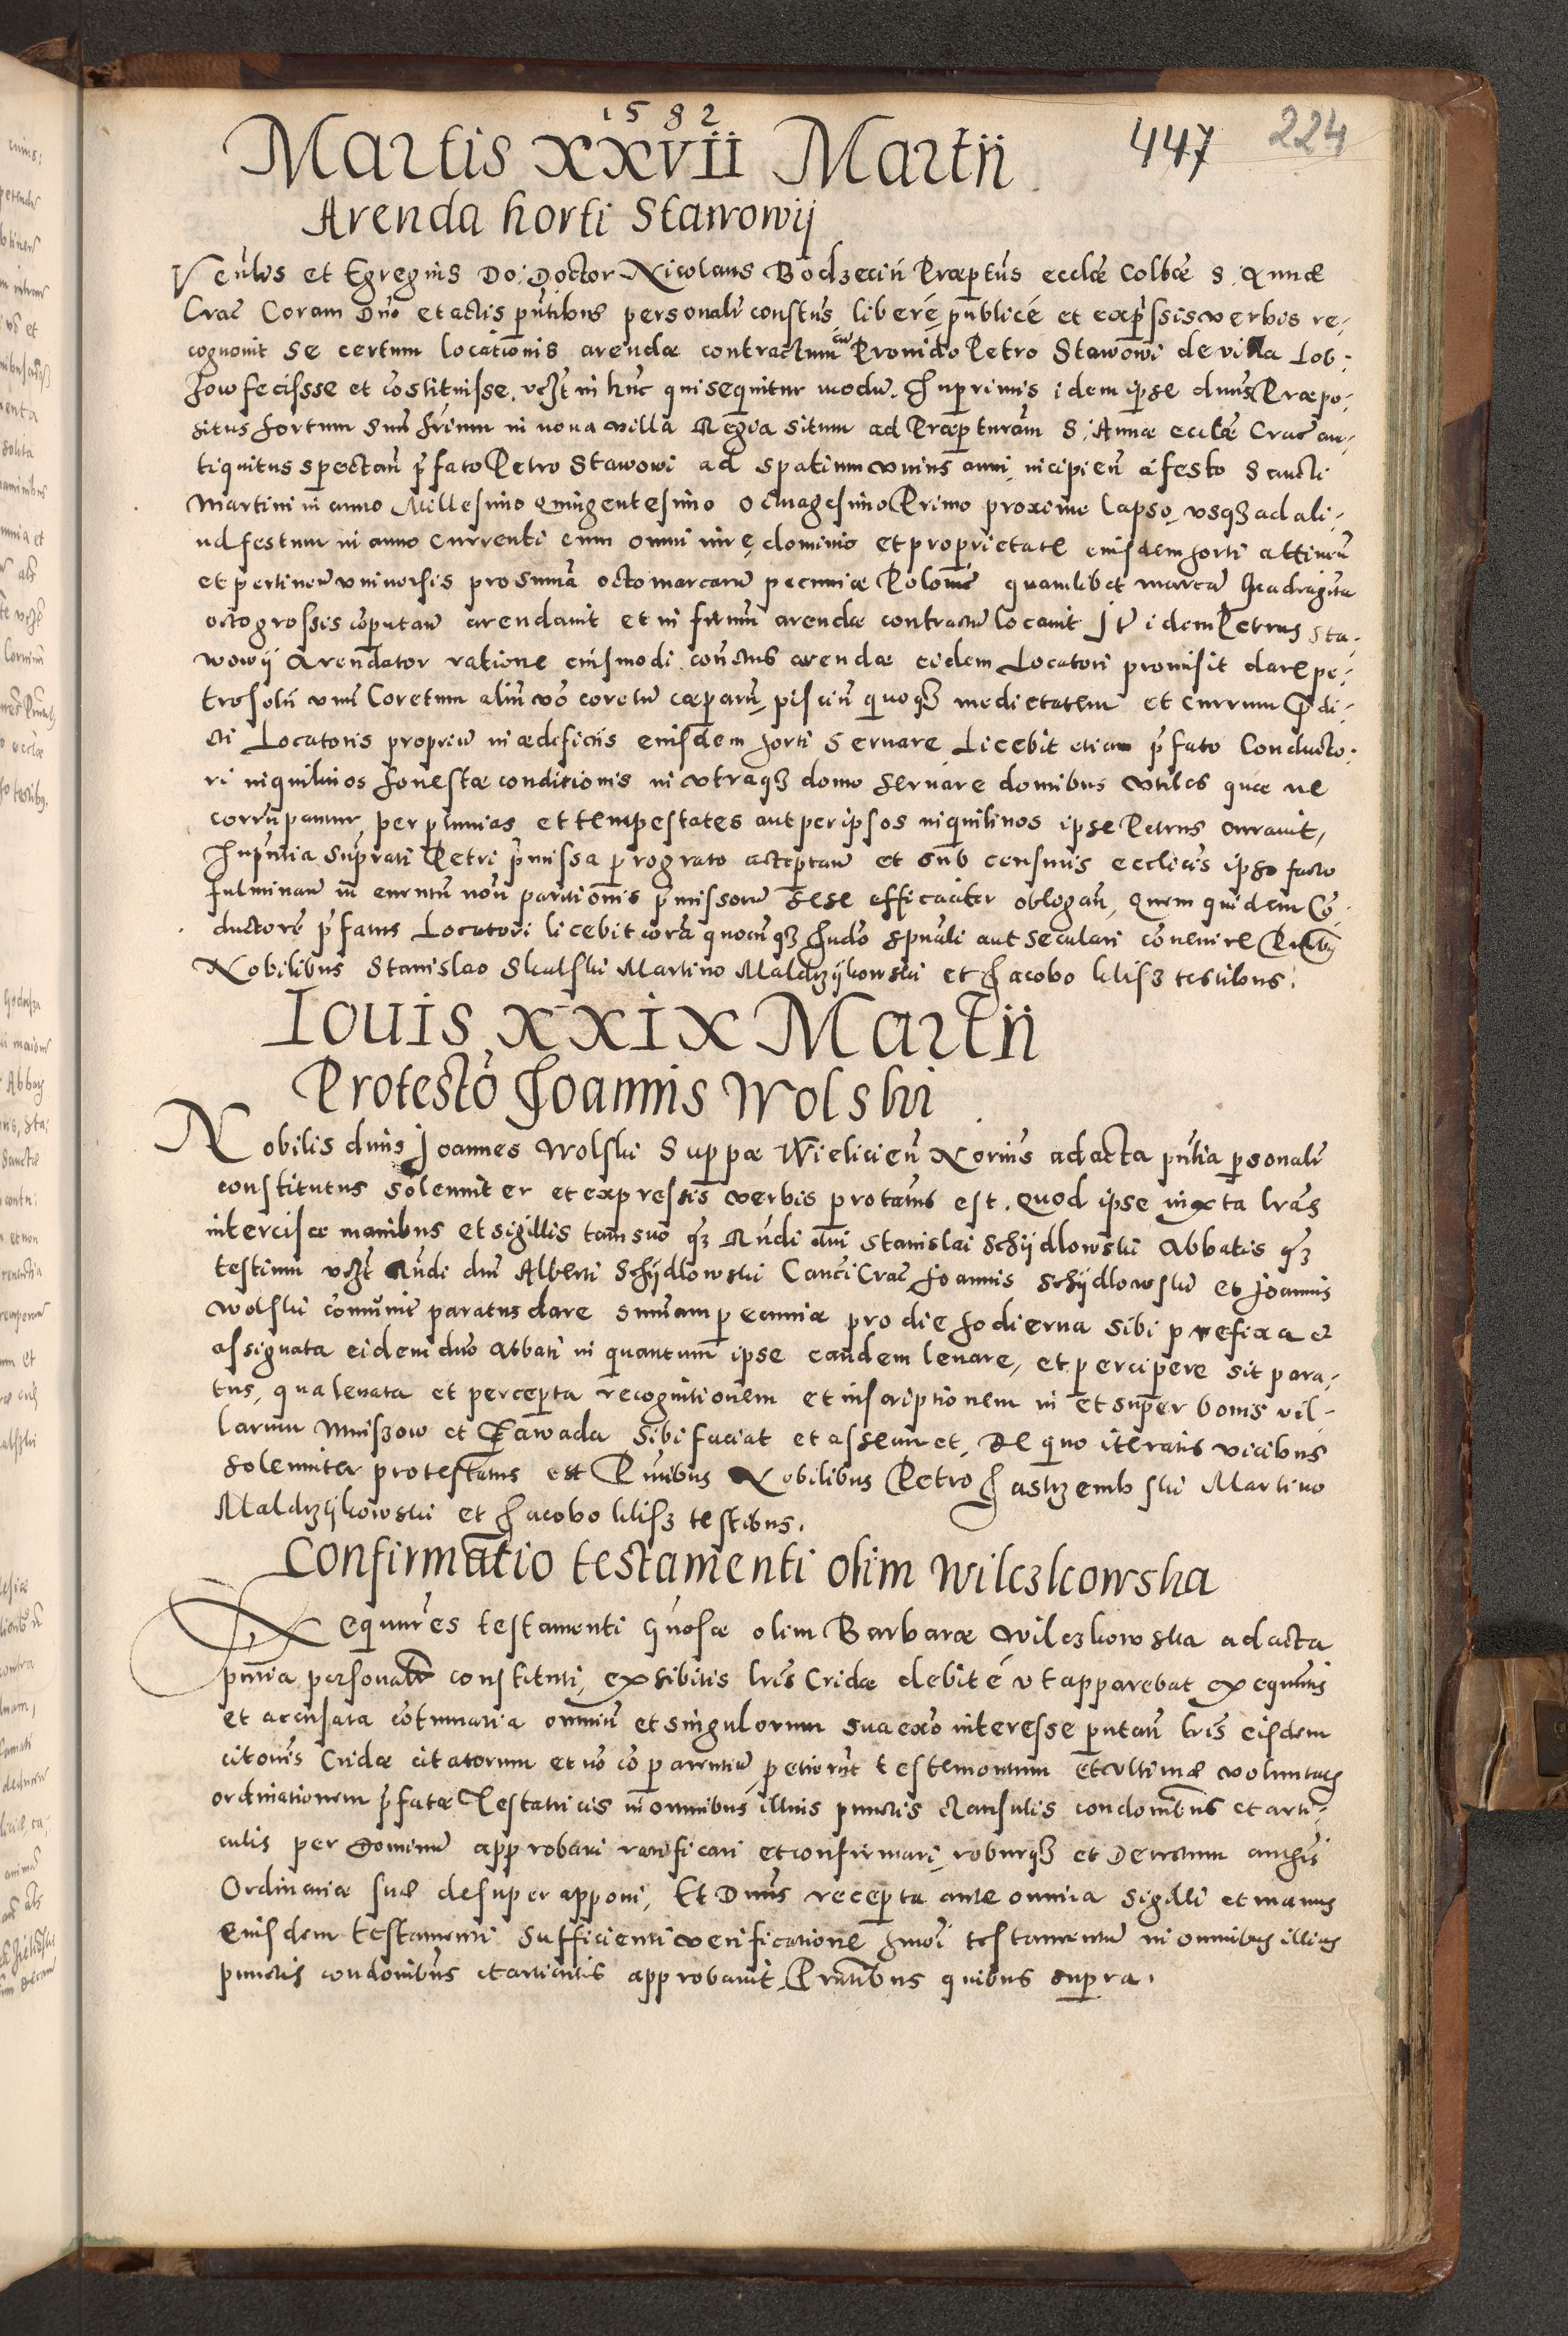 1582
447 224
Martis XXVII Martii
Arenda horti Stawowij
Venlis et Egregius Do: Doctor Nicolaus Bodzecin Præptus ecclæ Colltæ S. Annæ
Crac Coram Dno et actis pntibus personalr constus, liberé, publicé et exprssis verbis re-
cognovit se certum locationis arendæ contractum cu Provido Petro Stawowi de villa Lob-
zow fecisse et costituisse, vzlt in hunc qui sequitur modu. Inprimis idem ipse dnus Præpo-
situs hortum suu situm in nova villa Regia situm ad Præpturam S. Annæ ecclæ Crac an-
tiquitus spectan pfato Petro Stawowi ad spatium unius anni, incipien a festo Sancti
Martini in anno Millesimo Quingentesimo Octuagesimo Primo proxime lapso, usq ad ali-
ud festum in anno currenti cum omni iure, dominio et proprietate eiusdem horti attinen
et pertinen universis pro suma octo marcaru pecuniæ Polonic quamlibet marcam quadraginta
octo grossis coputan arendavit et in firmu arendæ contractu locavit Itt idem Petrus Sta-
wowij Arendator ratione eiusmodi conctus arendæ eidem Locatori promisit dare pe-
trosolii unu Coretum aliu vo coretu cæparu, pisciu quoq medietatem et currum Prædi-
cti Locatoris propriu in ædificiis eiusdem horti servare Licebit etiam pfato Conducto-
ri inquilinos honestæ conditionis in utraq domo servare domibus utiles quæ ne
corrupantur per pluvias et tempestates aut per ipsos inquilinos ipse Petrus curavit,
In pntia suprati Petri pmissa pro grato acceptan et sub censuris ecclicis ipso facto
fulminan in eventu non paritionis pmissoru sese efficaciter obligan, Quem quidem Co-
ductore pfatus Locatori licebit cora quocunq Judo spuali aut seculari convenire Pntibus
Nobilibus Stanislao Skalski Martino Maldrzijkowski et Jacobo Klisz testibus.
Iovis XXIX Martii
Protesto Joannis Wolski
Nobilis dnus Joannes Wolski Suppæ Wielicien Norius ad acta pntia personalr
constitutus solenniter et expressis verbis protatus est. Quod ipse iuxta lras
intercisæ manibus et sigillis tam suo q Rndi dni Stanislai Schijdlowski Abbatis q
testium vzlt Rndi dni Alberti Schijdlowski Canci Crac Joannis Schijdlowski et Joannis
Wolski comunit paratus dare summam pecuniæ pro die hodierna sibi prefixa et
assignata eidem dno Abbati in quantum ipse eandem levare, et percipere sit para-
tus, qua levata et percepta recognitionem et inscriptionem in et super bonis vil-
larum Mniszow et Zawada sibi faciat et assecuret, De quo iteratis vicibus
solenniter protestatus est Pntibus Nobilibus Petro Jastrzembski Martino
Maldrzijkowski et Jacobo Klisz testibus.
Confirmatio testamenti olim Wilczkowska
Exequutres testamenti Gnosæ olim Barbaræ Wilczkowska ad acta
pntia personalr constituti, exhibitis lris Cridæ debité ut apparebat exequutis
et accusata cotumatia omniu et singulorum sua exo interesse putan lris eisdem
citonis Cridæ citatorum et no coparentiu, petierut testamentum et ultimæ voluntatis
ordinationem pfatæ Testatricis in omnibus illius punctis clausulis condonibus et arti-
culis per Dominum approbari ratificari et confirmari, roburq et Decretum auchis
Ordinariæ suæ desuper apponi, Et Dnus recepta ante omnia sigilli et manus
eiusdem testamenti sufficienti verificatione hmoi testamentum in omnibus illius
punctis condonibus et articulis approbavit Pntibus quibus supra.